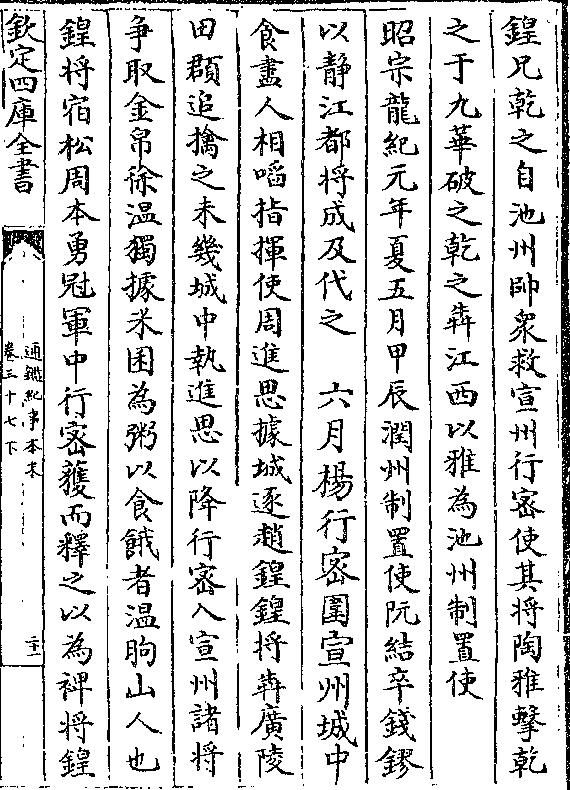 鍠兄乾之自池州帥衆救宣州行宻使其将陶雅擊乾
之于九華破之乾之犇江西以雅為池州制置使
昭宗龍紀元年夏五月甲辰潤州制置使阮結卒錢鏐
以静江都将成及代之　六月楊行宻圍宣州城中
食盡人相啗指揮使周進思據城逐趙鍠鍠将犇廣陵
田頵追擒之未幾城中執進思以降行宻入宣州諸将
争取金帛徐温獨據米囷為粥以食餓者温朐山人也
鍠将宿松周本勇冠軍中行宻獲而釋之以為裨将鍠
欽定四庫全書
通鑑紀事本末
卷三十七下